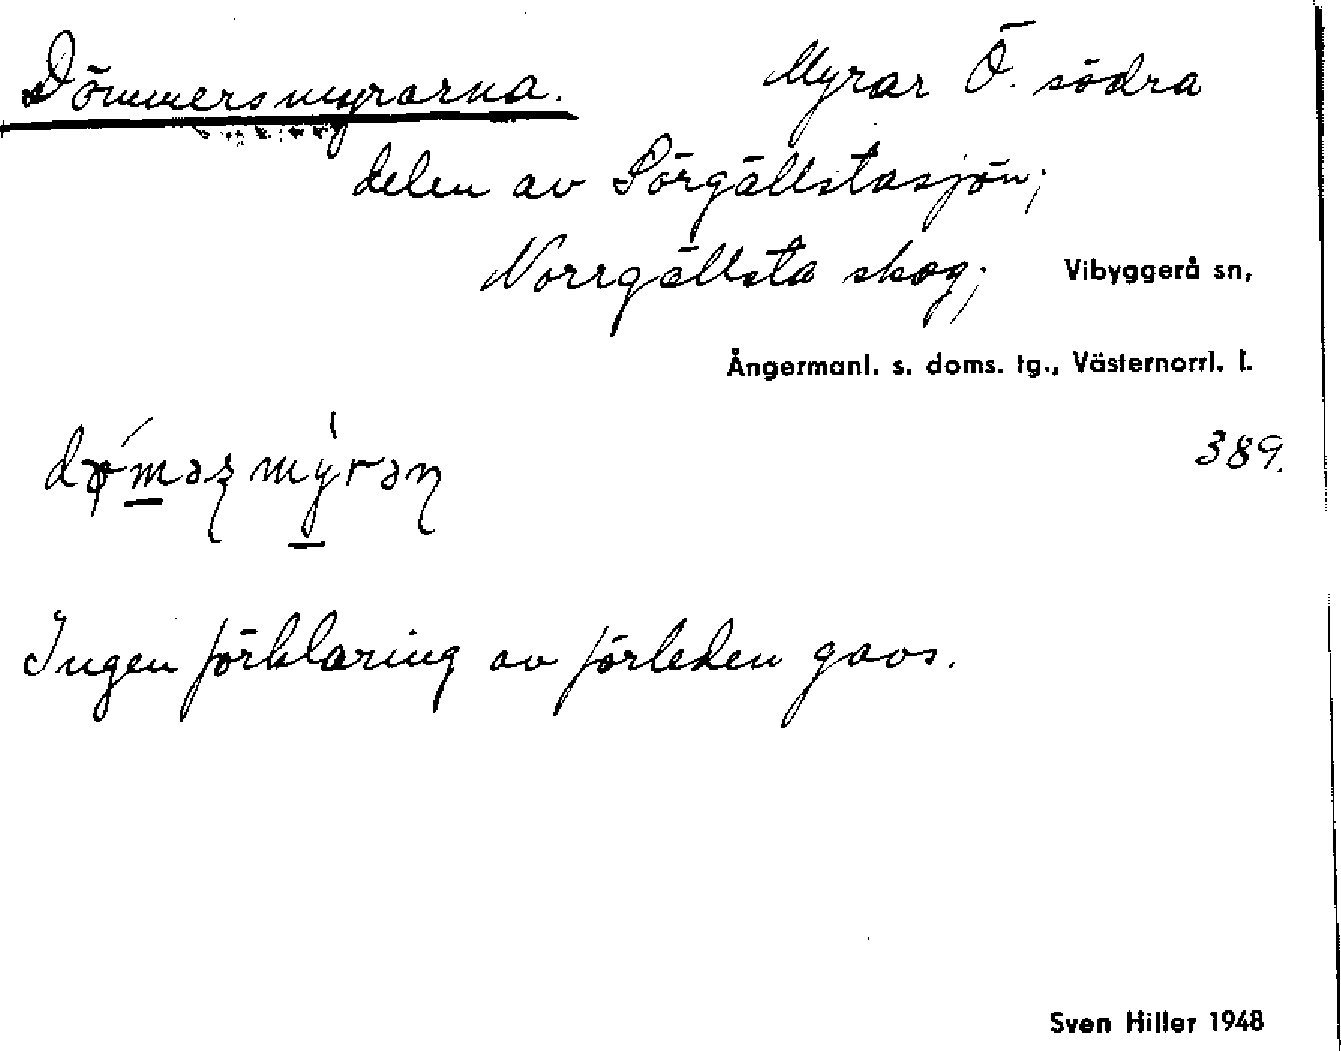 Dömmersmyrarna. Myrar Ö. södra
delen av Sörgällstasjön;
Norrgällsta skog; Vibyggerå sn,
Ångermanl. s. doms. tg., Västernorrl. l.
389.
Ingen förklaring av förleden gavs.
Sven Hiller 1948